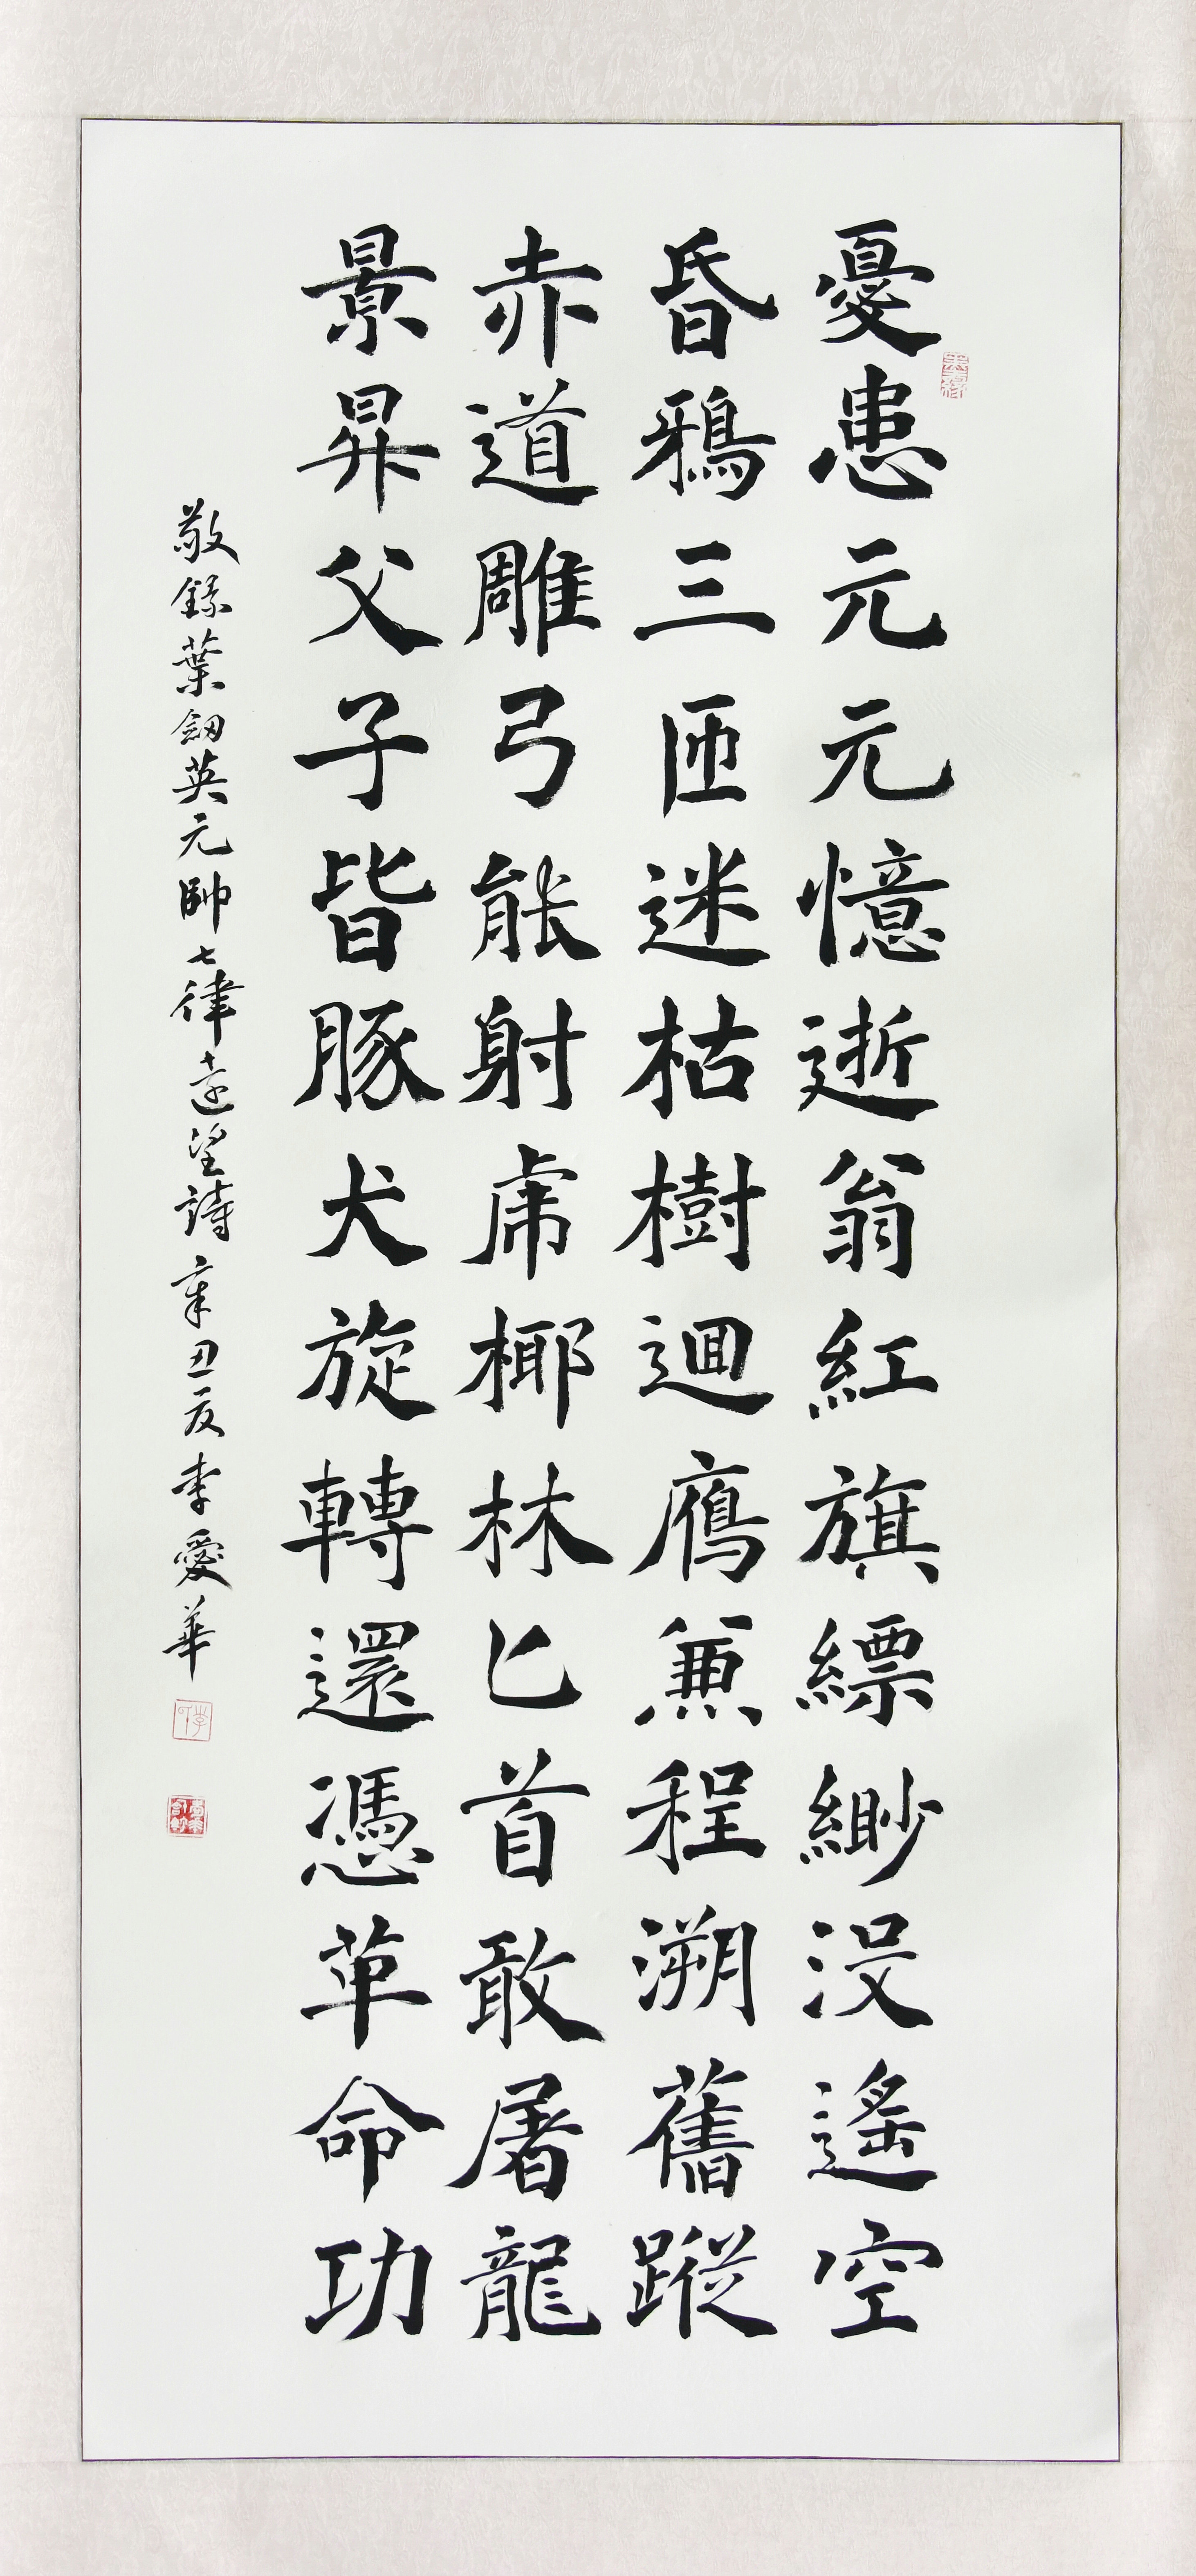 憂患元元憶逝翁紅旗縹緲没遙空
昏鴉三匝迷枯樹迴鴈兼程溯舊蹤
赤道雕弓能射虎椰林匕首敢屠龍
景昇父子皆豚犬旋轉還憑革命功
敬録葉劍英元帥七律遠望詩辛丑夏李愛華